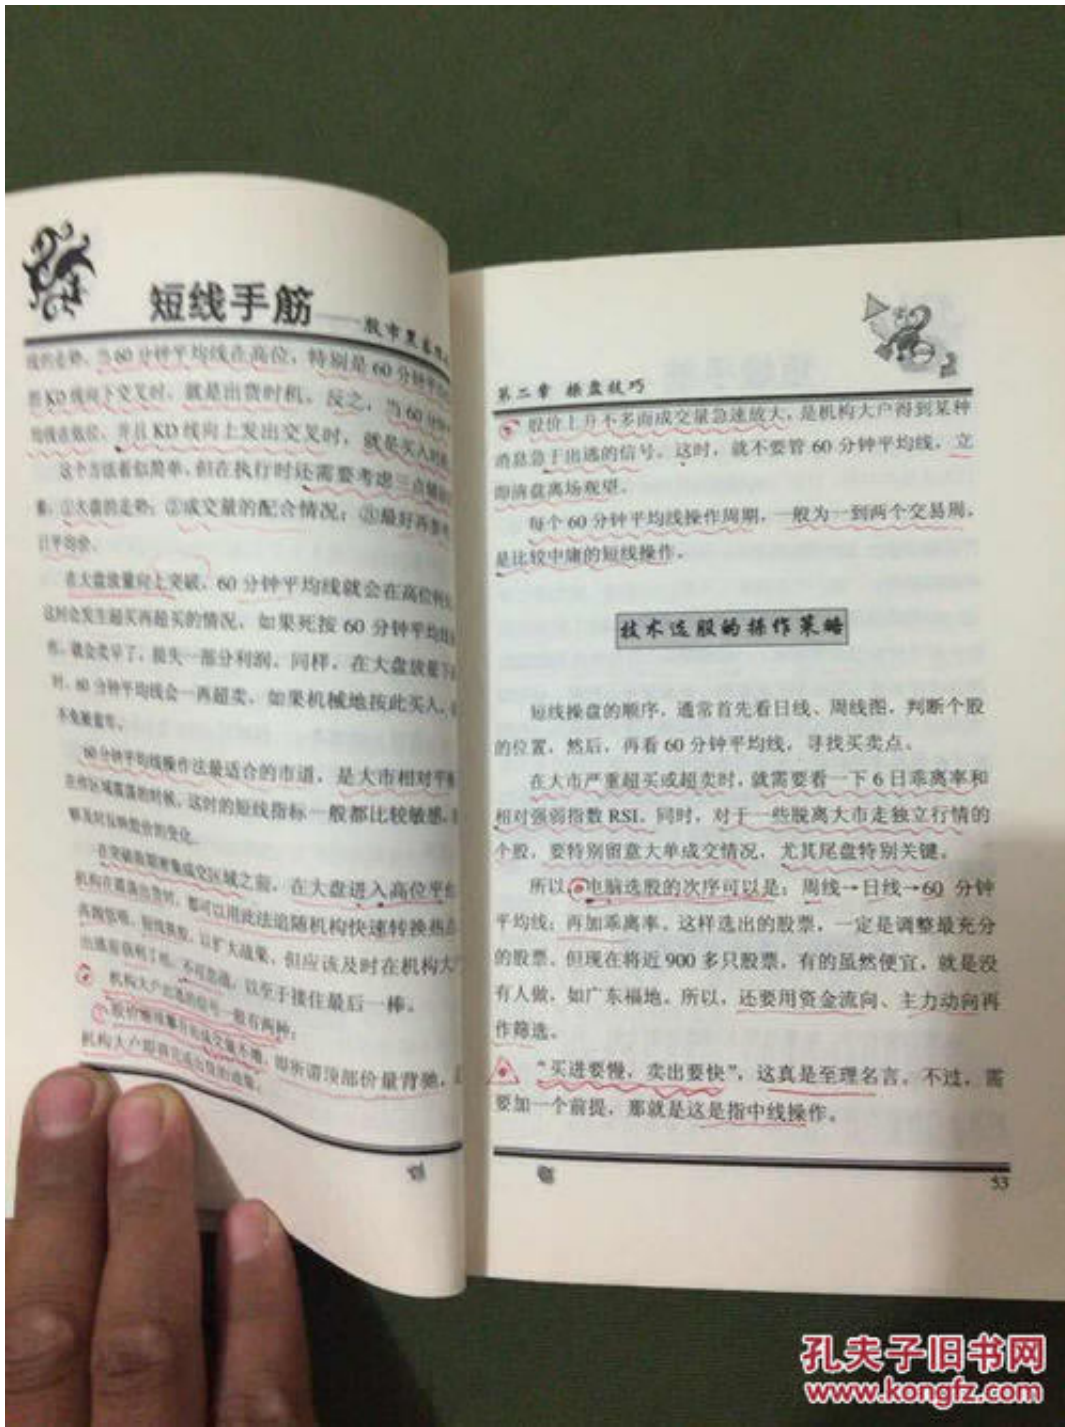 短线手筋——股市黑客
线的走势。当60分钟平均线在高位，特别是60分钟平均
KD线向下交叉时，就是出货时机。反之，当60分钟
均线在低位，并且KD线向上发出交叉时，就是买入时机
这个方法看似简单，但在执行时还需要考虑三点
①大盘的走势；②成交量的配合情况；③最好再参考
日平均价。
在大盘放量向上突破，60分钟平均线就会在高位
这时会发生超买再超买的情况，如果死按60分钟平均线
就会卖早了，损失一部分利润。同样，在大盘放量下
时，60分钟平均线会一再超卖，如果机械地按此买入，
不免被套牢。
60分钟平均线操作法最适合的市道，是大市相对平
的时候，这时的短线指标一般都比较敏感，
够及时反映股价的变化。
在突破前期密集成交区域之前，在大盘进入高位平
机构在震荡出货时，都可以用此法追随机构快速转换热点
高抛低吸，短线换股，以扩大战果。但应该及时在机构大户
出逃前获利了结，不可恋战，以至于接住最后一棒。
机构大户出逃的信号一般有两种：
①股价继续攀升而成交量不增，即所谓顶部价量背驰，
机构大户即将完成出货的迹象。
第二章 操盘技巧
股价上升不多而成交量急速放大，是机构大户得到某种
消息急于出逃的信号。这时，就不要管60分钟平均线，立
即清盘离场观望。
每个60分钟平均线操作周期，一般为一到两个交易周，
是比较中庸的短线操作。
技术选股的操作策略
短线操盘的顺序，通常首先看日线、周线图，判断个股
的位置，然后，再看60分钟平均线，寻找买卖点。
在大市严重超买或超卖时，就需要看一下6日乖离率和
相对强弱指数RSI。同时，对于一些脱离大市走独立行情的
个股，要特别留意大单成交情况，尤其尾盘特别关键。
所以，电脑选股的次序可以是：周线→日线→60分钟
平均线；再加乖离率。这样选出的股票，一定是调整最充分
的股票。但现在将近900多只股票，有的虽然便宜，就是没
有人做，如广东福地。所以，还要用资金流向、主力动向再
作筛选。
“买进要慢，卖出要快”，这真是至理名言。不过，需
要加一个前提，那就是这是指中线操作。
53
孔夫子旧书网
www.kongfz.com